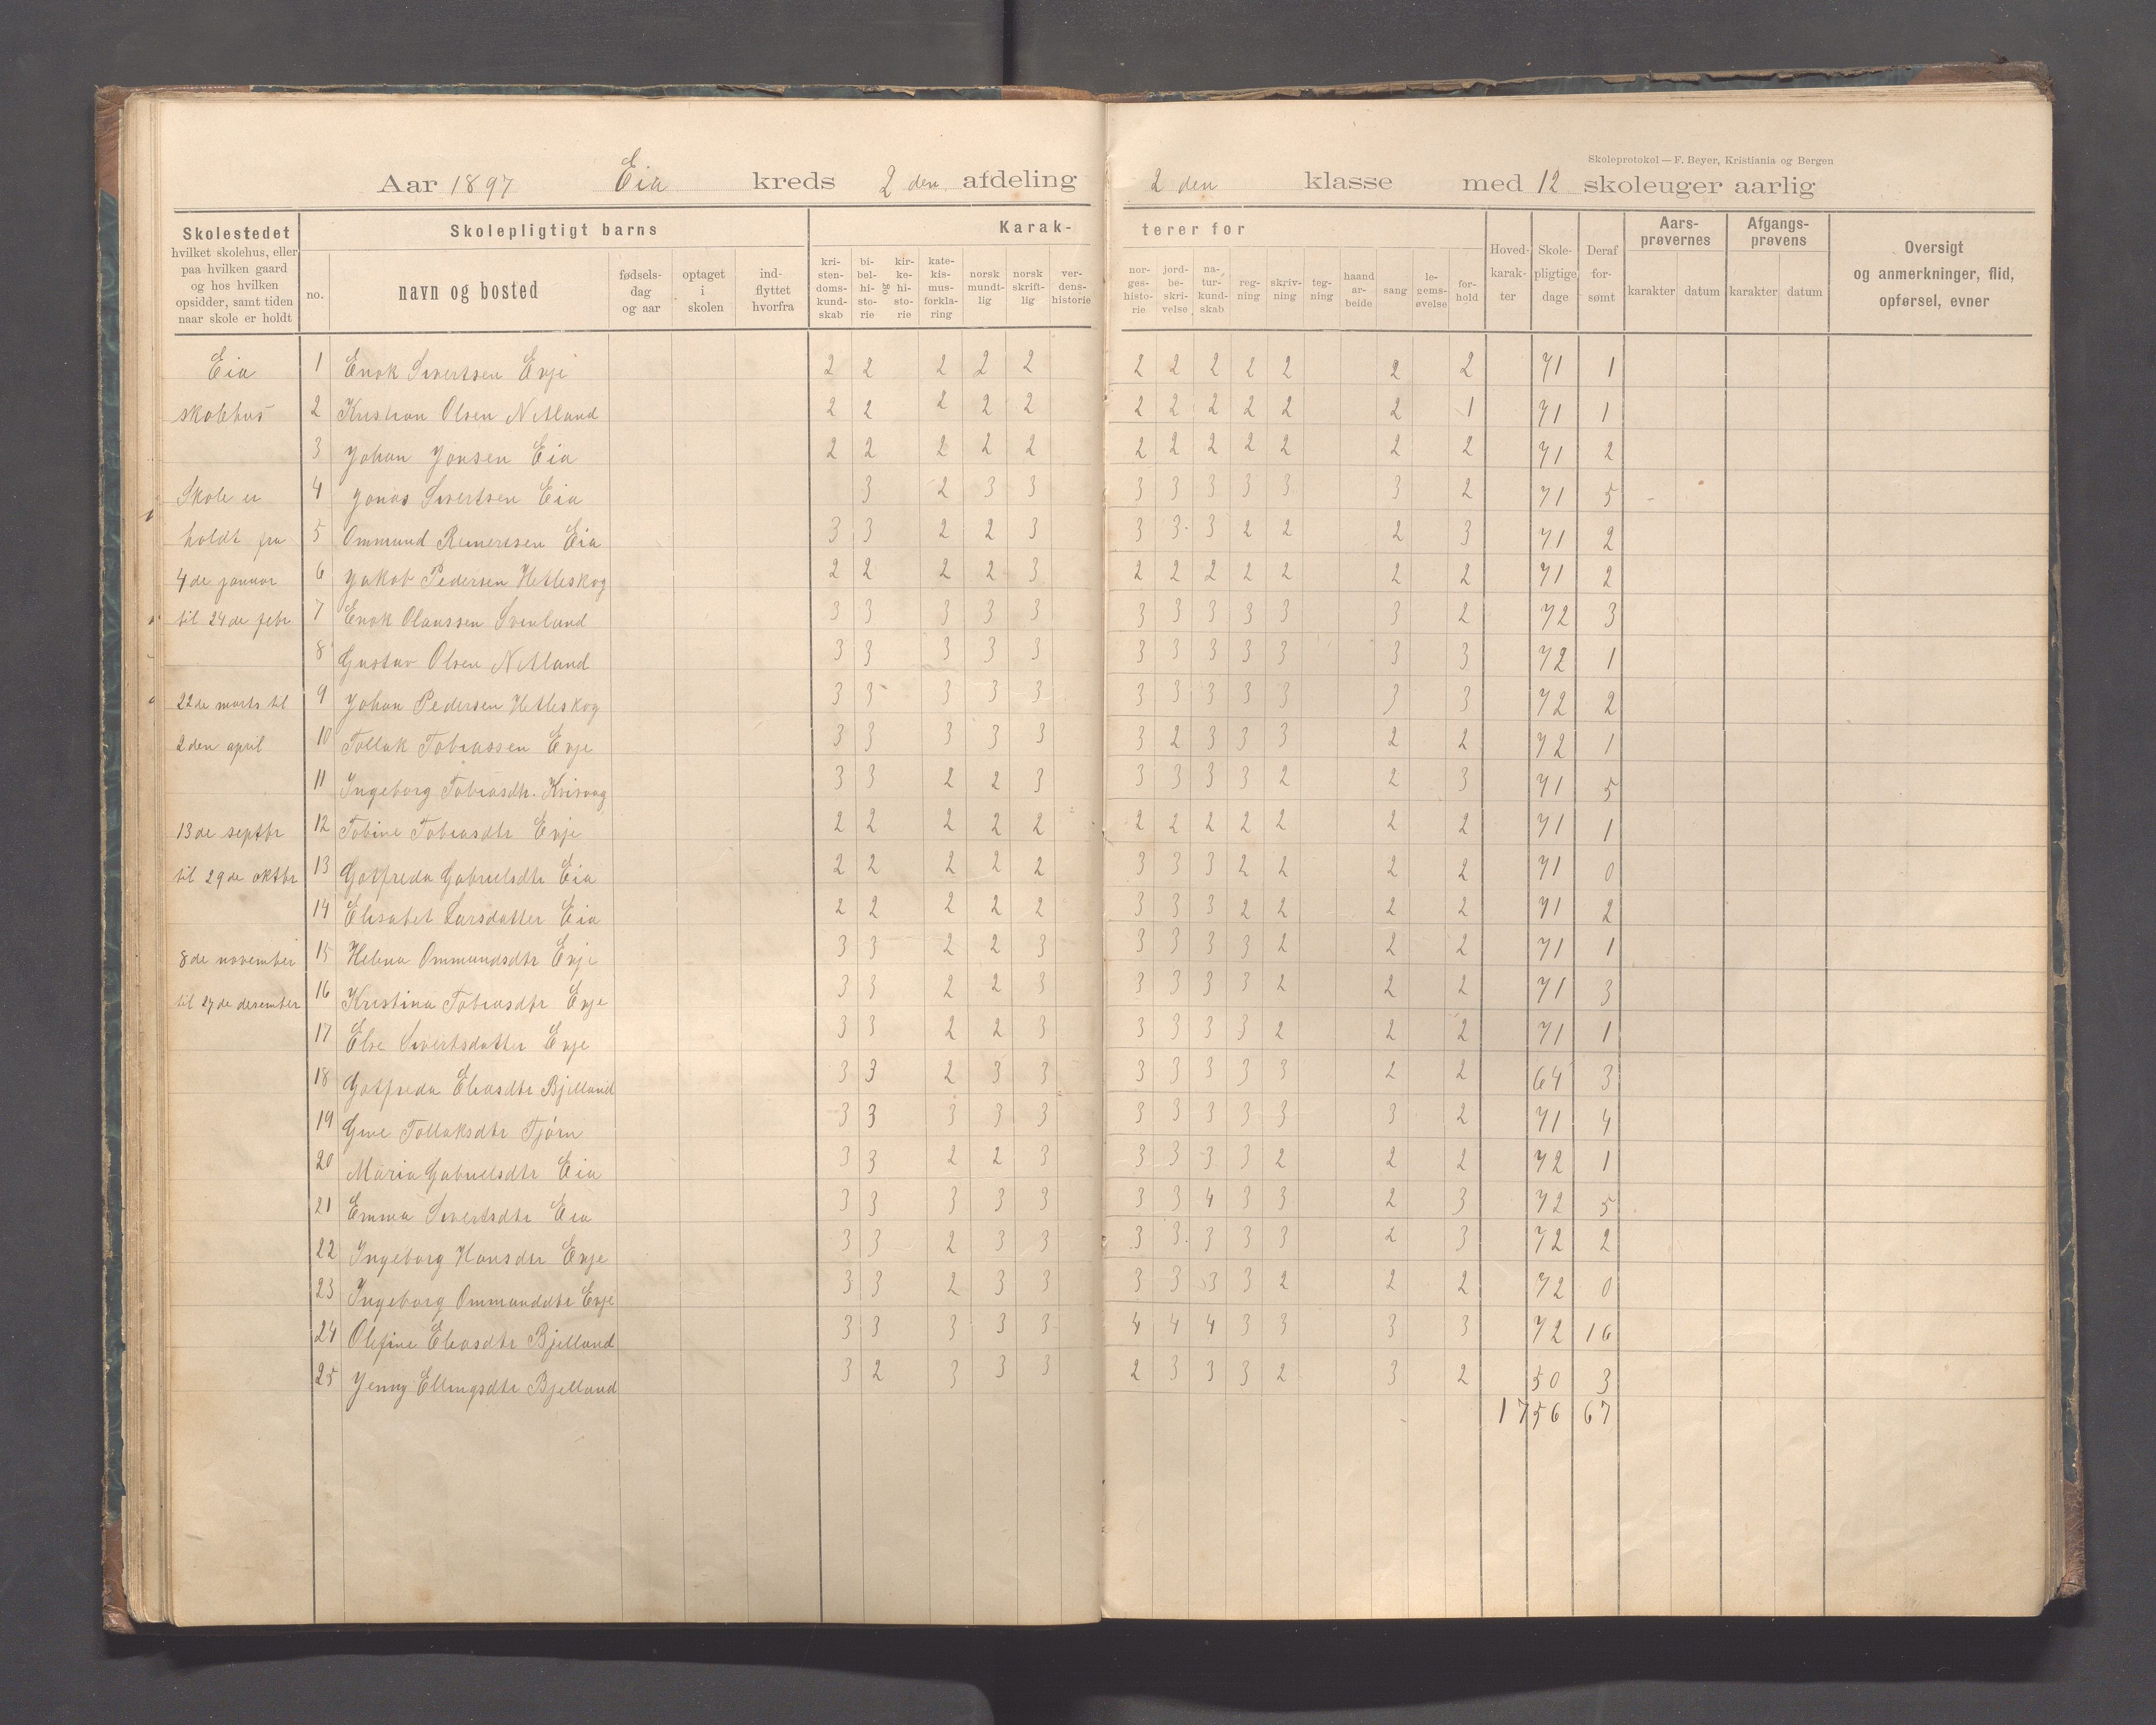 Skoleprotokol — F. Beyer, Kristiania og Bergen
Aar 1897 Eia kreds 2 den afdeling 2 den klasse med 12 skoleuger aarlig
Skolestedet hvilket skolehus, eller paa hvilken gaard og hos hvilken opsidder, samt tiden naar skole er holdt
Skolepligtigt barns
no. navn og bosted fødselsdag og aar optaget i skolen indflyttet hvorfra
Karakterer for
kristendomskundskab bibelhistorie og kirkehistorie katekismusforklaring norsk mundtlig norsk skriftlig verdenshistorie norgeshistorie jordbeskrivelse naturkundskab regning skrivning tegning haandarbeide sang legemsøvelse forhold
Hovedkarakter Skolepligtige dage Deraf forsømt
Aarsprøvernes karakter datum
Afgangsprøvens karakter datum
Oversigt og anmerkninger, flid, opførsel, evner
Eia 1 Enok Sivertsen Evje 2 2 2 2 2 2 2 2 2 2 2 2 71 1
skolehus 2 Kristian Olsen Netland 2 2 2 2 2 2 2 2 2 2 2 1 71 1
3 Johan Jonsen Eia 2 2 2 2 2 2 2 2 2 2 2 2 71 2
Skole er 4 Jonas Sivertsen Eia 3 2 3 3 3 3 3 3 3 3 2 71 5
holdt fra 5 Ommund Reinertsen Eia 3 3 2 2 3 3 3 3 2 2 2 3 71 2
4 de januar 6 Jakob Pedersen Hetleskog 2 2 2 2 3 2 2 2 2 2 2 2 71 2
til 24 de febr 7 Enok Olaussen 3 3 3 3 3 3 3 3 3 3 3 2 72 3
8 Gustav Olsen Netland 3 3 3 3 3 3 3 3 3 3 3 3 72 1
22 de marts til 9 Johan Pedersen Hetleskog 3 3 3 3 3 3 3 3 3 3 3 3 72 2
2 den april 10 Tollak Tobiassen Evje 3 3 3 3 3 3 2 3 3 3 2 2 72 1
11 Ingeborg Tobiasdtr. 3 3 2 2 3 3 3 3 3 2 2 3 71 5
13 de septbr 12 Tobine Tobiasdtr Evje 2 2 2 2 2 2 2 2 2 2 2 2 71 1
til 29 de oktbr 13 Gotfreda Gabrielsdtr Eia 2 2 2 2 2 3 3 3 2 2 2 2 71 0
14 Elisabet Larsdatter Eia 2 2 2 2 2 3 3 3 2 2 2 2 71 2
8 de november 15 Helena Ommundsdtr Evje 3 3 2 2 3 3 3 3 3 2 2 2 71 1
til 27 de desember 16 Kristina Tobiasdtr Evje 3 3 2 2 3 3 3 3 3 2 2 2 71 3
17 Else Sivertsdatter Evje 3 3 2 2 3 3 3 3 3 2 2 2 71 1
18 Gotfreda Eliasdtr Bjelland 3 3 2 3 3 3 3 3 3 3 2 2 64 3
19 Gine Tollaksdtr Tjørn 3 3 3 3 3 3 3 3 3 3 3 2 71 4
20 Maria Gabrielsdtr Eia 3 3 2 2 3 3 3 3 3 2 2 2 72 1
21 Emma Sivertsdtr Eia 3 3 3 3 3 3 3 4 3 3 2 3 72 5
22 Ingeborg Hansdtr Evje 3 3 2 3 3 3 3 3 3 3 2 3 72 2
23 Ingeborg Ommunddtr Evje 3 3 2 3 3 3 3 3 3 2 2 2 72 0
24 Olefine Eliasdtr Bjelland 3 3 3 3 3 4 4 4 3 3 3 3 72 16
25 Jenny Ellingsdtr Bjelland 3 2 3 3 3 2 3 3 3 2 3 2 50 3
1756 67